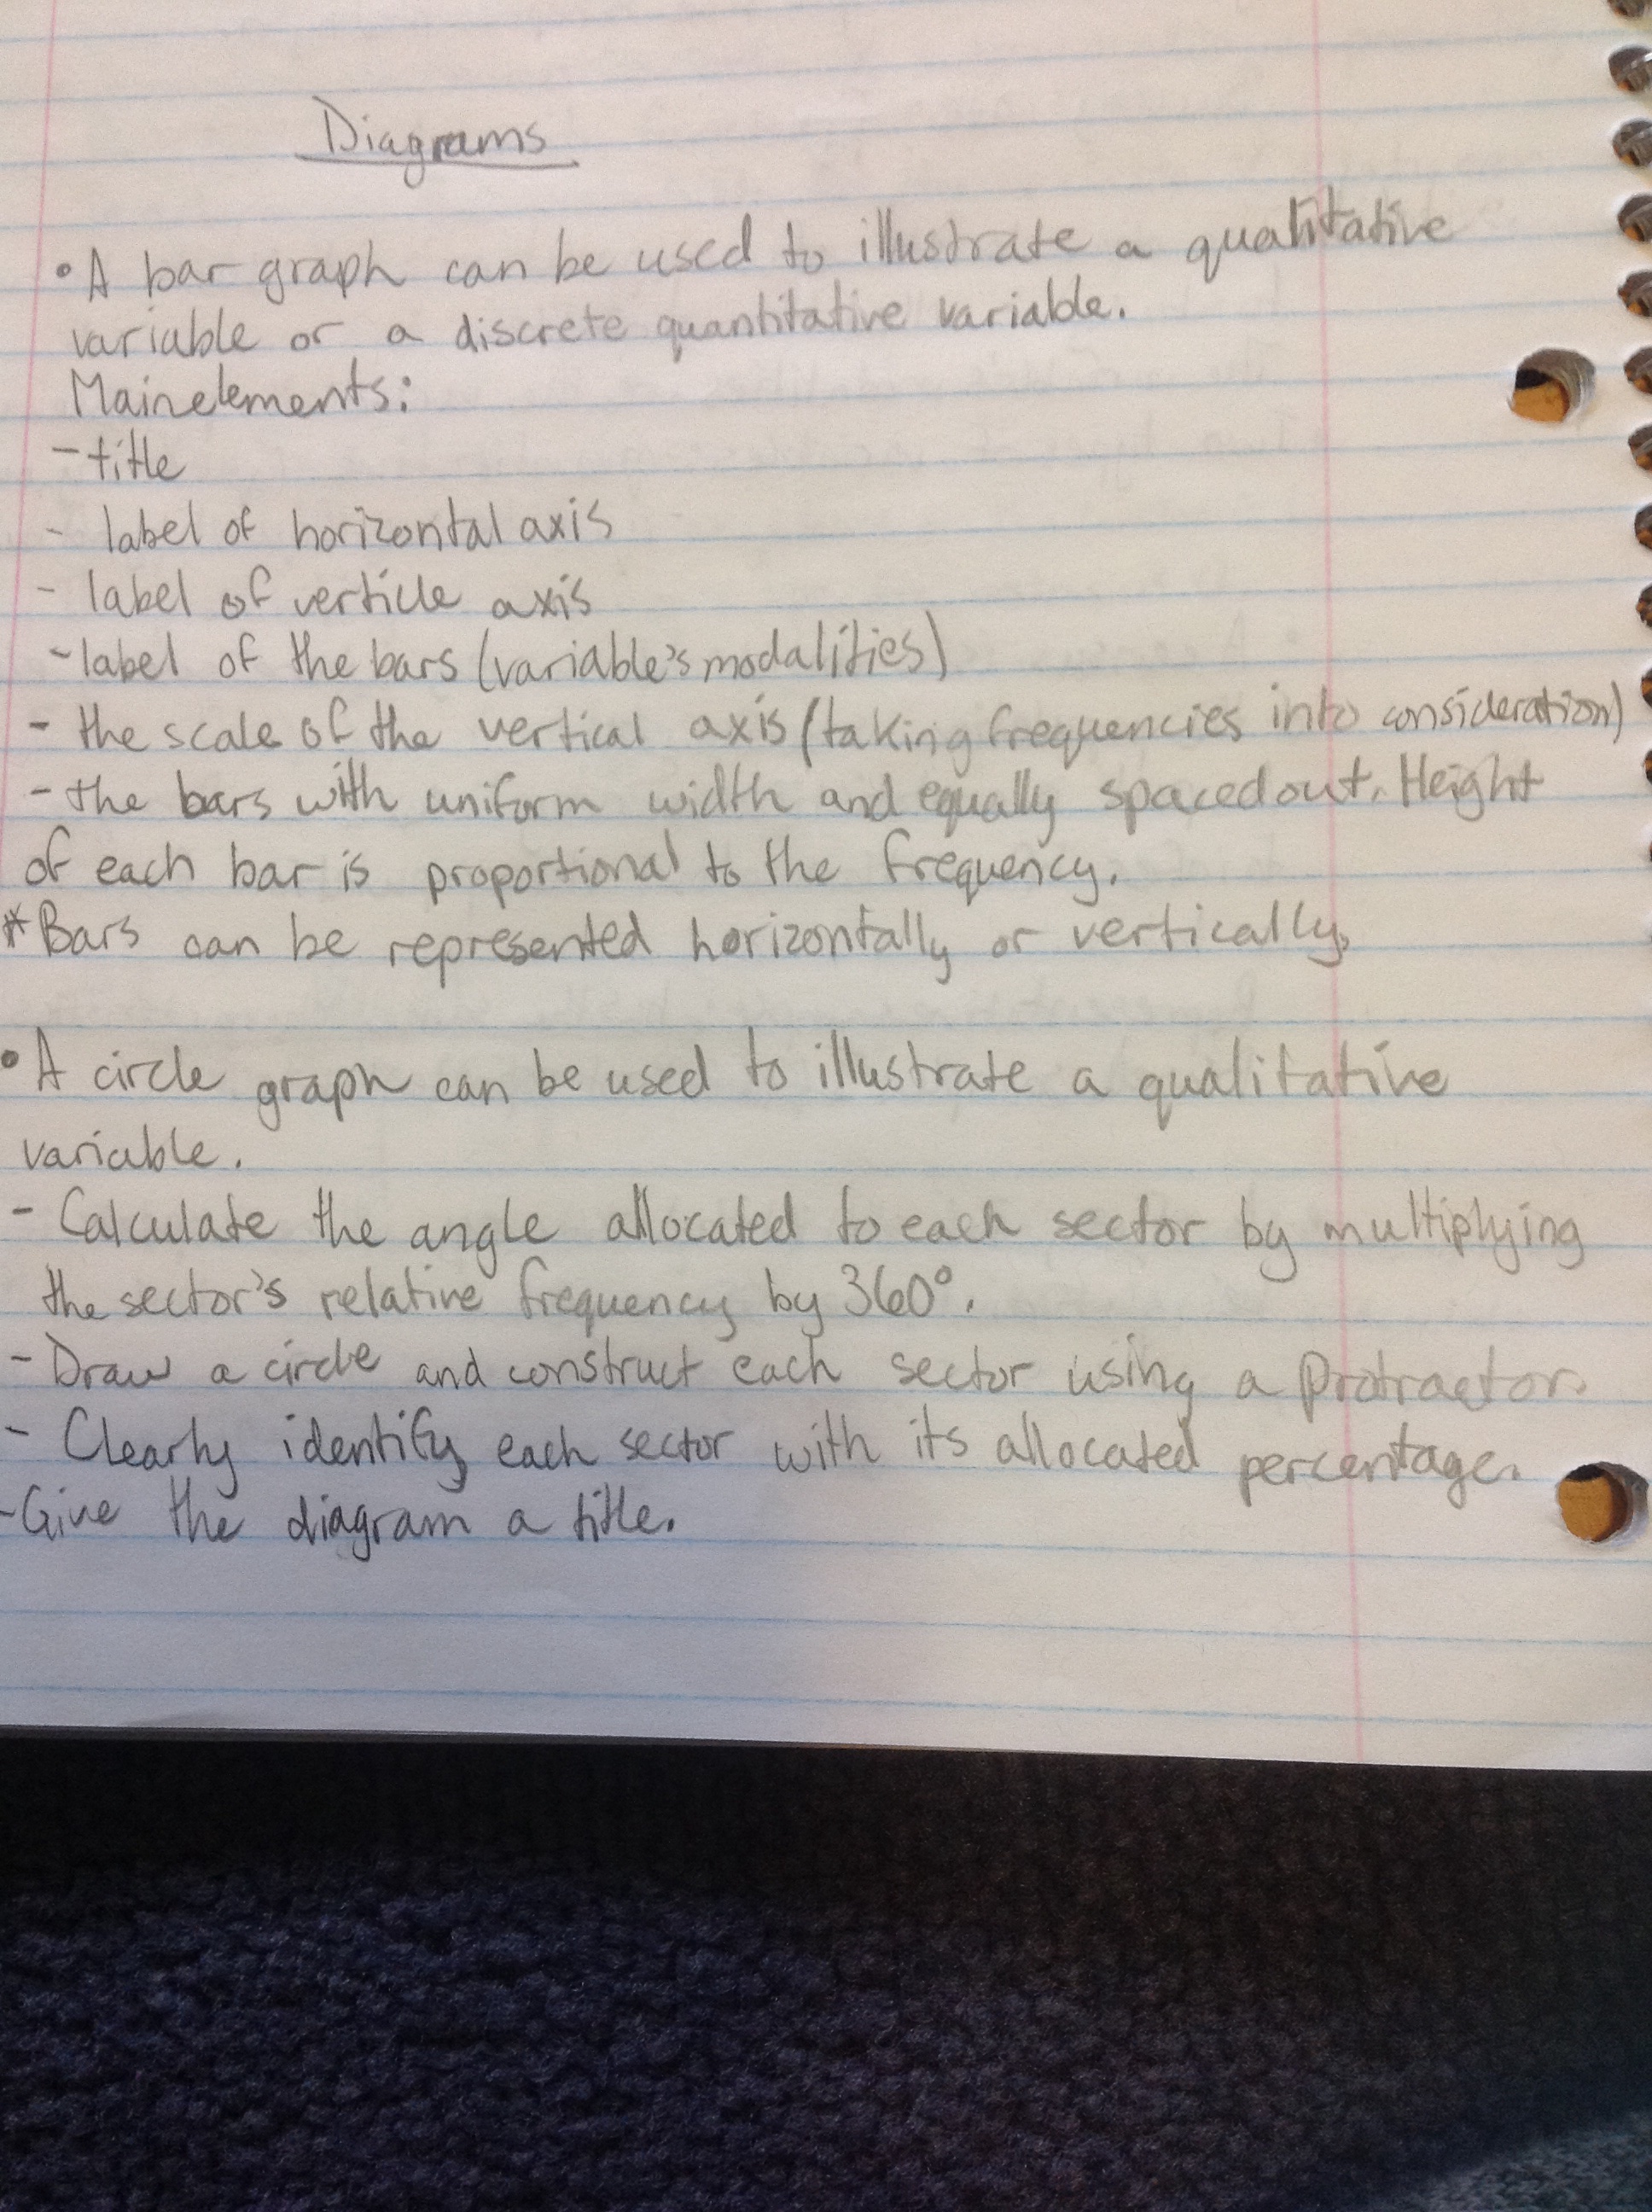 Diagrams
• A bar graph can be used to illustrate a qualitative
variable or a discrete quantitative variable.
Main elements:
- title
- label of horizontal axis
- label of verticle axis
- label of the bars (variable's modalities)
- the scale of the vertical axis (taking frequencies into consideration)
- the bars with uniform width and equally spaced out. Height
of each bar is proportional to the frequency.
* Bars can be represented horizontally or vertically.
• A circle graph can be used to illustrate a qualitative
variable.
- Calculate the angle allocated to each sector by multiplying
the sector's relative frequency by 360°.
- Draw a circle and construct each sector using a Protractor.
- Clearly identify each sector with its allocated percentage.
- Give the diagram a title.